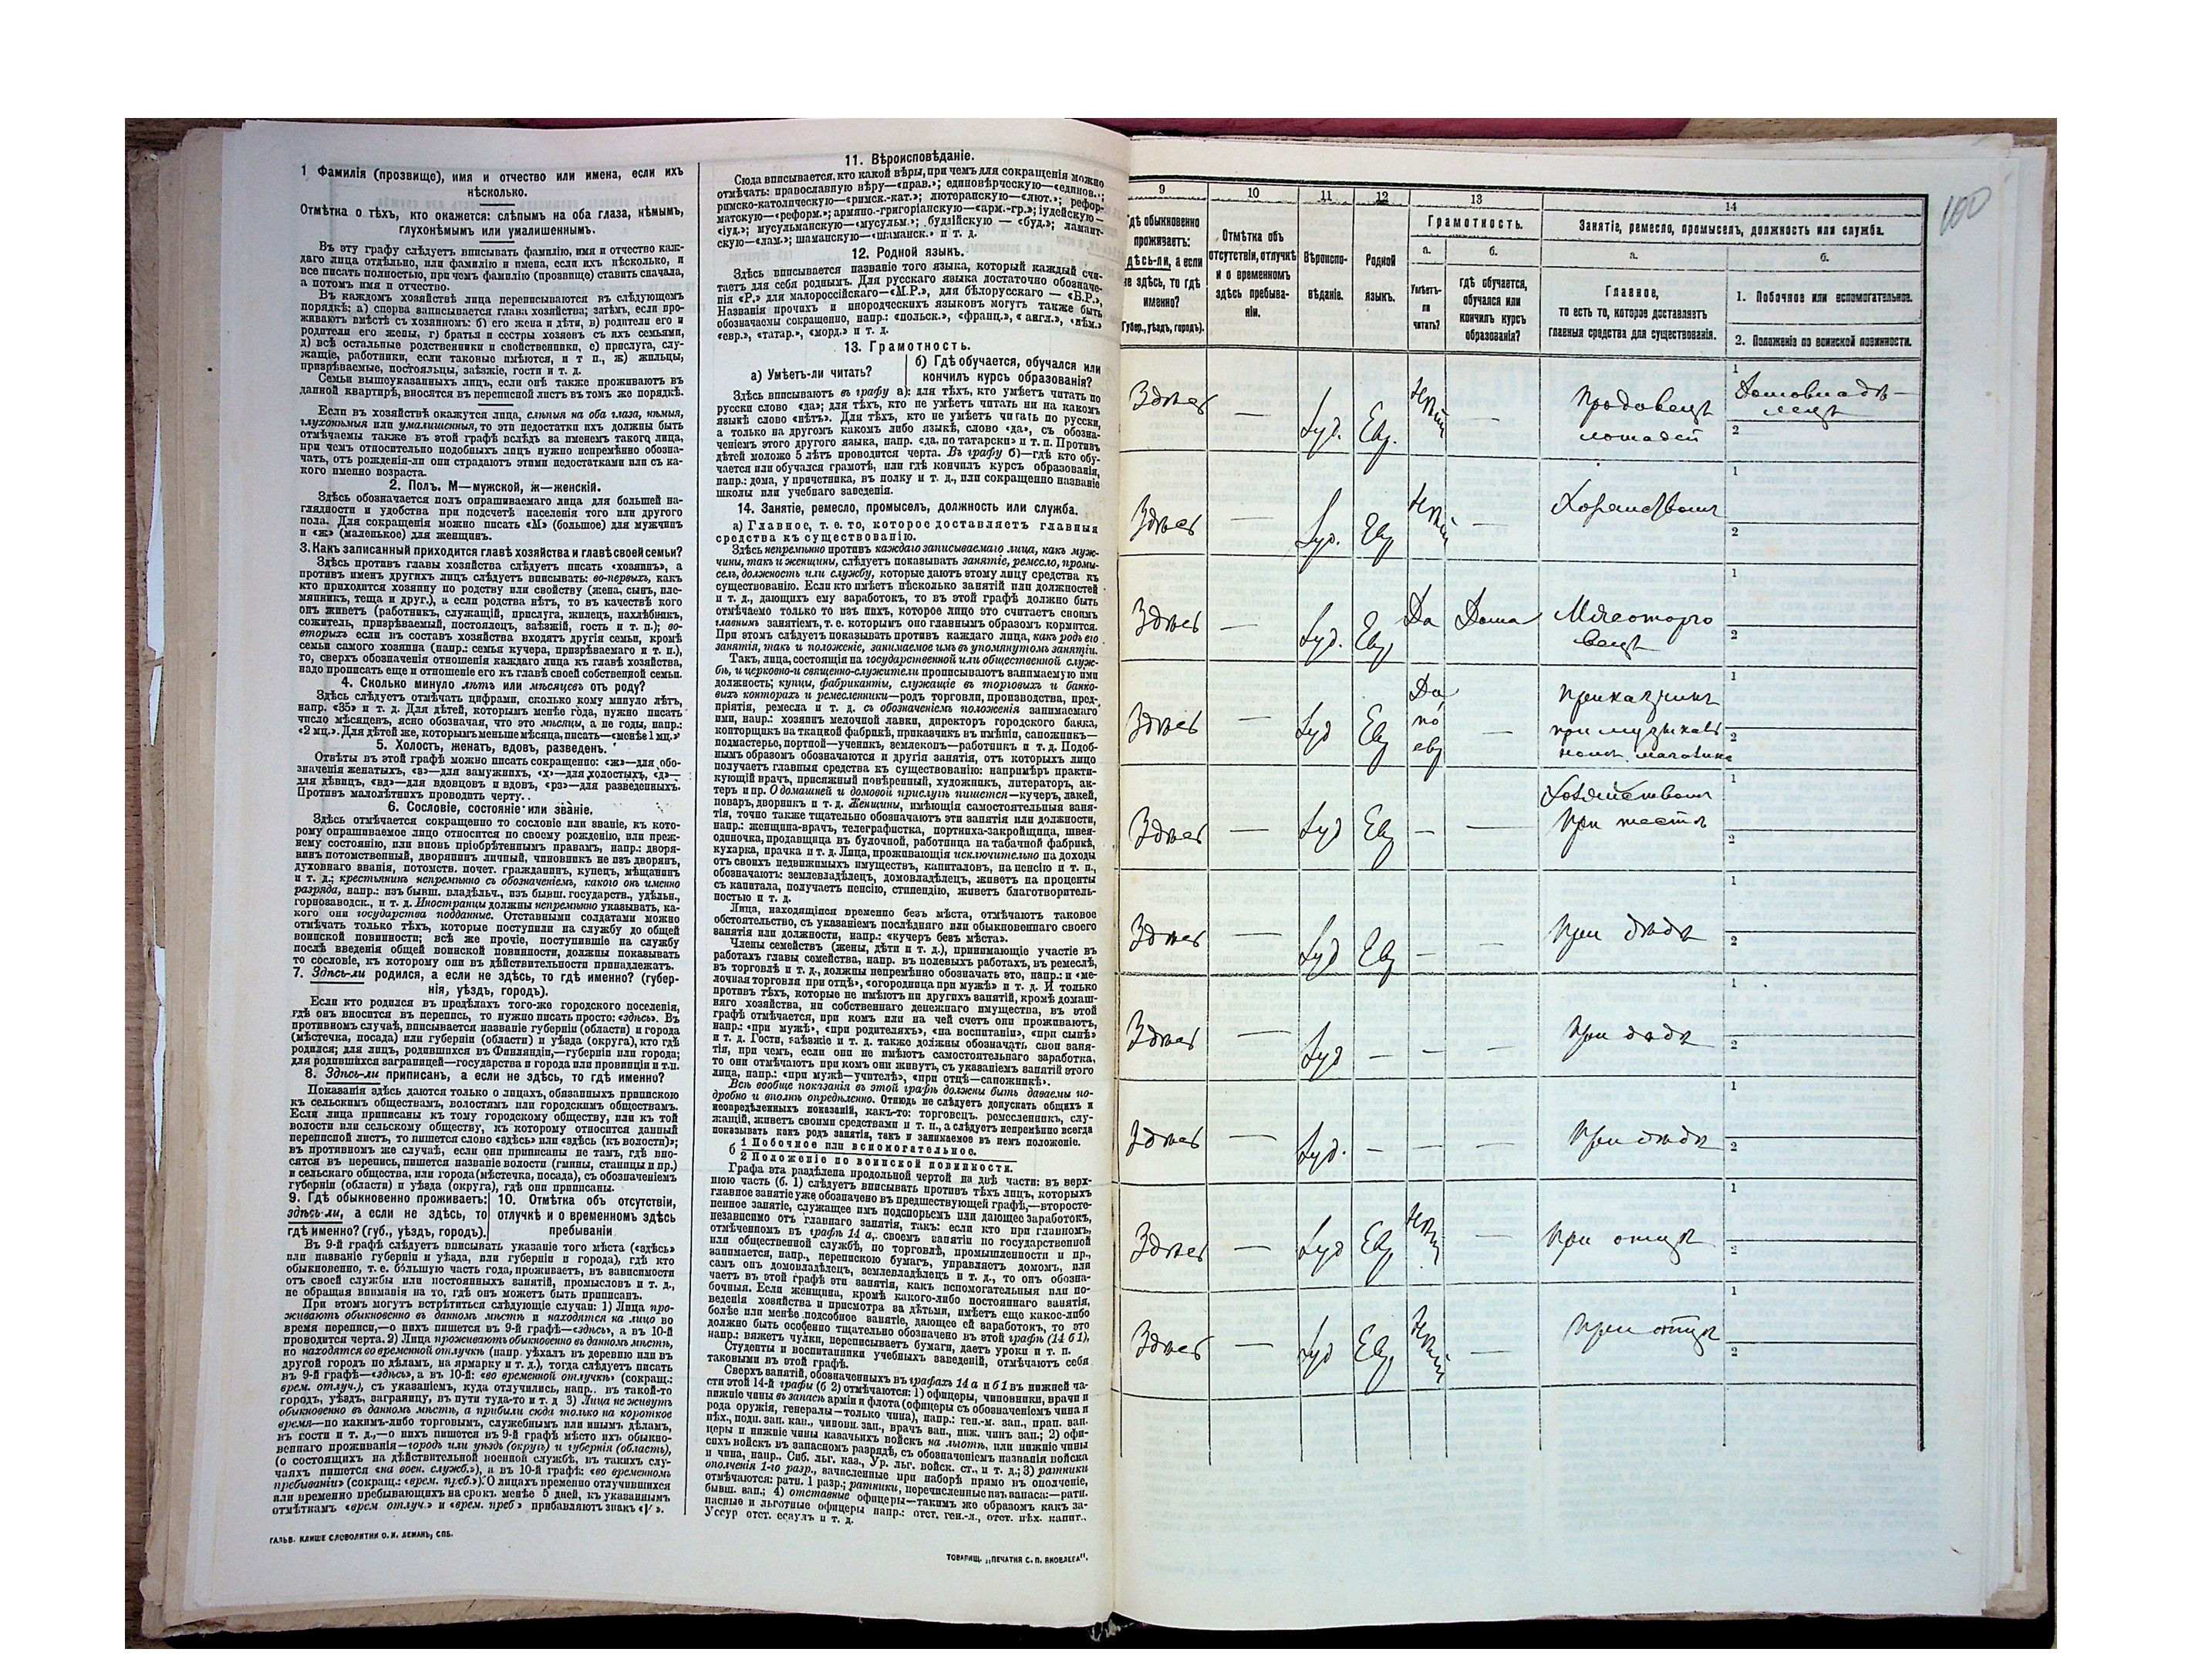 1 Фамилія (прозвище), имя и отчество или имена, если ихъ
нѣсколько.
Отмѣтка о тѣхъ, кто окажется: слѣпымъ на оба глаза, нѣмымъ,
глухонѣмымъ или умалишеннымъ.
Въ эту графу слѣдуетъ вписывать фамилію, имя и отчество каж-
даго лица отдѣльно, или фамилію и имена, если ихъ нѣсколько, и
все писать полностью, при чемъ фамилію (прозвище) ставить сначала,
а потомъ имя и отчество.
Въ каждомъ хозяйствѣ лица переписываются въ слѣдующемъ
порядкѣ: а) сперва записывается глава хозяйства; затѣмъ, если про-
живаютъ вмѣстѣ съ хозяиномъ: б) его жена и дѣти, в) родители его и
родители его жены, г) братья и сестры хозяевъ съ ихъ семьями,
д) всѣ остальные родственники и свойственники, е) прислуга, слу-
жащіе, работники, если таковые имѣются, и т п., ж) жильцы,
призрѣваемые, постояльцы, заѣзжіе, гости и т. д.
Семьи вышеуказанныхъ лицъ, если онѣ также проживаютъ въ
данной квартирѣ, вносятся въ переписной листъ въ томъ же порядкѣ.
Если въ хозяйствѣ окажутся лица, слѣпыя на оба глаза, нѣмыя,
глухонѣмыя или умалишенныя, то эти недостатки ихъ должны быть
отмѣчаемы также въ этой графѣ вслѣдъ за именемъ такого лица,
при чемъ относительно подобныхъ лицъ нужно непремѣнно обозна-
чать, отъ рожденія-ли они страдаютъ этими недостатками или съ ка-
кого именно возраста.
2. Полъ. М—мужской, ж—женскій.
Здѣсь обозначается полъ опрашиваемаго лица для большей на-
глядности и удобства при подсчетѣ населенія того или другого
пола. Для сокращенія можно писать «М» (большое) для мужчинъ
и «ж» (маленькое) для женщинъ.
3. Какъ записанный приходится главѣ хозяйства и главѣ своей семьи?
Здѣсь противъ главы хозяйства слѣдуетъ писать «хозяинъ», а
противъ именъ другихъ лицъ слѣдуетъ вписывать: во-первыхъ, какъ
кто приходится хозяину по родству или свойству (жена, сынъ, пле-
мянникъ, теща и друг.), а если родства нѣтъ, то въ качествѣ кого
онъ живетъ (работникъ, служащій, прислуга, жилецъ, нахлѣбникъ,
сожитель, призрѣваемый, постоялецъ, заѣзжій, гость и т. п.); во-
вторыхъ если въ составъ хозяйства входятъ другія семьи, кромѣ
семьи самого хозяина (напр.: семья кучера, призрѣваемаго и т. п.),
то, сверхъ обозначенія отношенія каждаго лица къ главѣ хозяйства,
надо прописать еще и отношеніе его къ главѣ своей собственной семьи.
4. Сколько минуло лѣтъ или мѣсяцевъ отъ роду?
Здѣсь слѣдуетъ отмѣчать цифрами, сколько кому минуло лѣтъ,
напр. «35» и т. д. Для дѣтей, которымъ менѣе года, нужно писать
число мѣсяцевъ, ясно обозначая, что это мѣсяцы, а не годы, напр.:
«2 мц.». Для дѣтей же, которымъ меньше мѣсяца, писать—«менѣе 1 мц.»
5. Холостъ, женатъ, вдовъ, разведенъ.
Отвѣты въ этой графѣ можно писать сокращенно: «ж»—для обо-
значенія женатыхъ, «з»—для замужнихъ, «х»—для холостыхъ, «д»—
для дѣвицъ, «вд»—для вдовцовъ и вдовъ, «рз»—для разведенныхъ.
Противъ малолѣтнихъ проводить черту.
6. Сословіе, состояніе или званіе.
Здѣсь отмѣчается сокращенно то сословіе или званіе, къ кото-
рому опрашиваемое лицо относится по своему рожденію, или преж-
нему состоянію, или вновь пріобрѣтеннымъ правамъ, напр.: дворя-
нинъ потомственный, дворянинъ личный, чиновникъ не изъ дворянъ,
духовнаго званія, потомств. почет. гражданинъ, купецъ, мѣщанинъ
и т. д.; крестьянинъ непремѣнно съ обозначеніемъ, какого онъ именно
разряда, напр.: изъ бывш. владѣльч., изъ бывш. государств., удѣльн.,
горнозаводск., и т. д. Иностранцы должны непремѣнно указывать, ка-
кого они государства подданные. Отставными солдатами можно
отмѣчать только тѣхъ, которые поступили на службу до общей
воинской повинности; всѣ же прочіе, поступившіе на службу
послѣ введенія общей воинской повинности, должны показывать
то сословіе, къ которому они въ дѣйствительности принадлежатъ.
7. Здѣсь-ли родился, а если не здѣсь, то гдѣ именно? (губер-
нія, уѣздъ, городъ).
Если кто родился въ предѣлахъ того-же городского поселенія,
гдѣ онъ вносится въ перепись, то нужно писать просто: «здѣсь». Въ
противномъ случаѣ, вписывается названіе губерніи (области) и города
(мѣстечка, посада) или губерніи (области) и уѣзда (округа), кто гдѣ
родился; для лицъ, родившихся въ Финляндіи,—губерніи или города;
для родившихся заграницей—государства и города или провинціи и т.п.
8. Здѣсь-ли приписанъ, а если не здѣсь, то гдѣ именно?
Показанія здѣсь даются только о лицахъ, обязанныхъ припискою
къ сельскимъ обществамъ, волостямъ или городскимъ обществамъ.
Если лица приписаны къ тому городскому обществу, или къ той
волости или сельскому обществу, къ которому относится данный
переписной листъ, то пишется слово «здѣсь» или «здѣсь (къ волости)»;
въ противномъ же случаѣ, если они приписаны не тамъ, гдѣ вно-
сятся въ перепись, пишется названіе волости (гмины, станицы и пр.)
и сельскаго общества, или города (мѣстечка, посада), съ обозначеніемъ
губерніи (области) и уѣзда (округа), гдѣ они приписаны.
9. Гдѣ обыкновенно проживаетъ: 10. Отмѣтка объ отсутствіи,
здѣсь-ли, а если не здѣсь, то отлучкѣ и о временномъ здѣсь
гдѣ именно? (губ., уѣздъ, городъ). пребываніи
Въ 9-й графѣ слѣдуетъ вписывать указаніе того мѣста («здѣсь»
или названіе губерніи и уѣзда, или губерніи и города), гдѣ кто
обыкновенно, т. е. бо́льшую часть года, проживаетъ, въ зависимости
отъ своей службы или постоянныхъ занятій, промысловъ и т. д.,
не обращая вниманія на то, гдѣ онъ можетъ быть приписанъ.
При этомъ могутъ встрѣтиться слѣдующіе случаи: 1) Лица про-
живаютъ обыкновенно въ данномъ мѣстѣ и находятся на лицо во
время переписи,—о нихъ пишется въ 9-й графѣ—«здѣсь», а въ 10-й
проводится черта. 2) Лица проживаютъ обыкновенно въ данномъ мѣстѣ,
но находятся во временной отлучкѣ (напр. уѣхалъ въ деревню или въ
другой городъ по дѣламъ, на ярмарку и т. д.), тогда слѣдуетъ писать
въ 9-й графѣ—«здѣсь», а въ 10-й: «во временной отлучкѣ» (сокращ.:
врем. отлуч.), съ указаніемъ, куда отлучились, напр.. въ такой-то
городъ, уѣздъ, заграницу, въ пути туда-то и т. д 3) Лица не живутъ
обыкновенно въ данномъ мѣстѣ, а прибыли сюда только на короткое
время—по какимъ-либо торговымъ, служебнымъ или инымъ дѣламъ,
въ гости и т. д.,—о нихъ пишется въ 9-й графѣ мѣсто ихъ обыкно-
веннаго проживанія—городъ или уѣздъ (округъ) и губернія (область),
(о состоящихъ на дѣйствительной военной службѣ, въ такихъ слу-
чаяхъ пишется «на воен. служб.»), а въ 10-й графѣ: «во временномъ
пребываніи» (сокращ.: «врем. преб.»). О лицахъ временно отлучившихся
или временно пребывающихъ на срокъ менѣе 5 дней, къ указаннымъ
отмѣткамъ «врем отлуч.» и «врем. преб» прибавляютъ знакъ «V».
ГАЛЬВ. КЛИШЕ СЛОВОЛИТНИ О. И. ЛЕМАНЪ, СПБ.
11. Вѣроисповѣданіе.
Сюда вписывается, кто какой вѣры, при чемъ для сокращенія можно
отмѣчать: православную вѣру—«прав.»; единовѣрческую—«единов.»;
римско-католическую—«римск.-кат.»; лютеранскую—«лют.»; рефор-
матскую—«реформ.»; армяно.-григоріанскую—«арм.-гр.»; іудейскую—
«іуд.»; мусульманскую—«мусульм.»; буддійскую—«буд.»; ламаит-
скую—«лам.»; шаманскую—«шаманск.» и т. д.
12. Родной языкъ.
Здѣсь вписывается названіе того языка, который каждый счи-
таетъ для себя роднымъ. Для русскаго языка достаточно обозначе-
нія «Р.» для малороссійскаго—«М.Р.», для бѣлорусскаго — «Б.Р.»,
Названія прочихъ и инородческихъ языковъ могутъ также быть
обозначаемы сокращенно, напр.: «польск.», «франц.», «англ.», «нѣм.»
«евр.», «татар.», «морд.» и т. д.
13. Грамотность.
а) Умѣетъ-ли читать?
б) Гдѣ обучается, обучался или
кончилъ курсъ образованія?
Здѣсь вписываютъ въ графу а): для тѣхъ, кто умѣетъ читать по
русски слово «да»; для тѣхъ, кто не умѣетъ читать ни на какомъ
языкѣ слово «нѣтъ». Для тѣхъ, кто не умѣетъ читать по русски,
а только на другомъ какомъ либо языкѣ, слово «да», съ обозна-
ченіемъ этого другого языка, напр. «да, по татарски» и т. п. Противъ
дѣтей моложе 5 лѣтъ проводится черта. Въ графу б)—гдѣ кто обу-
чается или обучался грамотѣ, или гдѣ кончилъ курсъ образованія,
напр.: дома, у причетника, въ полку и т. д., или сокращенно названіе
школы или учебнаго заведенія.
14. Занятіе, ремесло, промыселъ, должность или служба.
а) Главное, т. е. то, которое доставляетъ главныя
средства къ существованію.
Здѣсь непремѣнно противъ каждаго записываемаго лица, какъ муж-
чины, такъ и женщины, слѣдуетъ показывать занятіе, ремесло, промы-
селъ, должность или службу, которые даютъ этому лицу средства къ
существованію. Если кто имѣетъ нѣсколько занятій или должностей
и т. д., дающихъ ему заработокъ, то въ этой графѣ должно быть
отмѣчаемо только то изъ нихъ, которое лицо это считаетъ своимъ
главнымъ занятіемъ, т. е. которымъ оно главнымъ образомъ кормится.
При этомъ слѣдуетъ показывать противъ каждаго лица, какъ родъ его
занятія, такъ и положеніе, занимаемое имъ въ упомянутомъ занятіи.
Такъ, лица, состоящія на государственной или общественной служ-
бѣ, и церковно-и священно-служители прописываютъ занимаемую ими
должность; купцы, фабриканты, служащіе въ торговыхъ и банко-
выхъ конторахъ и ремесленники—родъ торговли, производства, пред-
пріятія, ремесла и т. д. съ обозначеніемъ положенія занимаемаго
ими, напр.: хозяинъ мелочной лавки, директоръ городского банка,
конторщикъ на ткацкой фабрикѣ, приказчикъ въ имѣніи, сапожникъ—
подмастерье, портной—ученикъ, землекопъ—работникъ и т. д. Подоб-
нымъ образомъ обозначаются и другія занятія, отъ которыхъ лицо
получаетъ главныя средства къ существованію: напримѣръ практи-
кующій врачъ, присяжный повѣренный, художникъ, литераторъ, ак-
теръ и пр. О домашней и домовой прислугѣ пишется—кучеръ, лакей,
поваръ, дворникъ и т. д. Женщины, имѣющія самостоятельныя заня-
тія, точно также тщательно обозначаютъ эти занятія или должности,
напр.: женщина-врачъ, телеграфистка, портниха-закройщица, швея-
одиночка, продавщица въ булочной, работница на табачной фабрикѣ,
кухарка, прачка и т. д. Лица, проживающія исключительно на доходы
отъ своихъ недвижимыхъ имуществъ, капиталовъ, на пенсію и т. п.,
обозначаютъ: землевладѣлецъ, домовладѣлецъ, живетъ на проценты
съ капитала, получаетъ пенсію, стипендію, живетъ благотворитель-
ностью и т. д.
Лица, находящіяся временно безъ мѣста, отмѣчаютъ таковое
обстоятельство, съ указаніемъ послѣдняго или обыкновеннаго своего
занятія или должности, напр.: «кучеръ безъ мѣста».
Члены семействъ (жены, дѣти и т. д.), принимающіе участіе въ
работахъ главы семейства, напр. въ полевыхъ работахъ, въ ремеслѣ,
въ торговлѣ и т. д., должны непремѣнно обозначать это, напр.: и «ме-
лочная торговля при отцѣ», «огородница при мужѣ» и т. д. И только
противъ тѣхъ, которые не имѣютъ ни другихъ занятій, кромѣ домаш-
няго хозяйства, ни собственнаго денежнаго имущества, въ этой
графѣ отмѣчается, при комъ или на чей счетъ они проживаютъ,
напр.: «при мужѣ», «при родителяхъ», «на воспитаніи», «при сынѣ»
и т. д. Гости, заѣзжіе и т. д. также должны обозначать свои заня-
тія, при чемъ, если они не имѣютъ самостоятельнаго заработка,
то они отмѣчаютъ при комъ они живутъ, съ указаніемъ занятій этого
лица, напр.: «при мужѣ—учителѣ», «при отцѣ—сапожникѣ».
Всѣ вообще показанія въ этой графѣ должны быть даваемы по-
дробно и вполнѣ опредѣленно. Отнюдь не слѣдуетъ допускать общихъ и
неопредѣленныхъ показаній, какъ-то: торговецъ, ремесленникъ, слу-
жащій, живетъ своими средствами и т. п., а слѣдуетъ непремѣнно всегда
показывать какъ родъ занятія, такъ и занимаемое въ немъ положеніе.
б 1 Побочное или вспомогательное.
2 Положеніе по воинской повинности.
Графа эта раздѣлена продольной чертой на двѣ части: въ верх-
нюю часть (б. 1) слѣдуетъ вписывать противъ тѣхъ лицъ, которыхъ
главное занятіе уже обозначено въ предшествующей графѣ,—второсте-
пенное занятіе, служащее имъ подспорьемъ или дающее заработокъ,
независимо отъ главнаго занятія, такъ: если кто при главномъ,
отмѣченномъ въ графѣ 14 а,. своемъ занятіи по государственной
или общественной службѣ, по торговлѣ, промышленности и пр.,
занимается, напр., перепискою бумагъ, управляетъ домомъ, или
самъ онъ домовладѣлецъ, землевладѣлецъ и т. д., то онъ обозна-
чаетъ въ этой графѣ эти занятія, какъ вспомогательныя или по-
бочныя. Если женщина, кромѣ какого-либо постояннаго занятія,
веденія хозяйства и присмотра за дѣтьми, имѣетъ еще какое-либо
болѣе или менѣе подсобное занятіе, дающее ей заработокъ, то это
должно быть особенно тщательно обозначено въ этой графѣ (14 б 1),
напр.: вяжетъ чулки, переписываетъ бумаги, даетъ уроки и т. п.
Студенты и воспитанники учебныхъ заведеній, отмѣчаютъ себя
таковыми въ этой графѣ.
Сверхъ занятій, обозначенныхъ въ графахъ 14 а и б 1 въ нижней ча-
сти этой 14-й графы (б 2) отмѣчаются: 1) офицеры, чиновники, врачи и
нижніе чины въ запасѣ арміи и флота (офицеры съ обозначеніемъ чина и
рода оружія, генералы—только чина), напр.: ген.-м. зап., прап. зап.
пѣх., подп. зап. кав., чиновн. зап., врачъ зап., ниж. чинъ зап.; 2) офи-
церы и нижніе чины казачьихъ войскъ на льготѣ, или нижніе чины
сихъ войскъ въ запасномъ разрядѣ, съ обозначеніемъ названія войска
и чина, напр.. Сиб. льг. каз., Ур. льг. войск. ст., и т. д.; 3) ратники
ополченія 1-го разр., зачисленные при наборѣ прямо въ ополченіе,
отмѣчаются: ратн. 1 разр.; ратники, перечисленные изъ запаса:—ратн.
бывш. зап.; 4) отставные офицеры—такимъ же образомъ какъ за-
пасные и льготные офицеры напр.: отст. ген.-л., отст. пѣх. капит.,
Уссур отст. есаулъ и т. д.
ТОВАРИЩ. „ПЕЧАТНЯ С. П. ЯКОВЛЕВА".
100
9 10 11 12 13 14
Гдѣ обыкновенно
проживаетъ:
здѣсь-ли, а если
не здѣсь, то гдѣ
именно?
(Губер., уѣздъ, городъ).
Отмѣтка объ
отсутствіи, отлучкѣ
и о временномъ
здѣсь пребыва-
ніи.
Вѣроиспо-
вѣданіе.
Родной
языкъ.
Грамотность.
а. б.
Умѣетъ-
ли
читать?
гдѣ обучается,
обучался или
кончилъ курсъ
образованія?
Занятіе, ремесло, промыселъ, должность или служба.
а. б.
Главное,
то есть то, которое доставляетъ
главныя средства для существованія.
1. Побочное или вспомогательное.
2. Положеніе по воинской повинности.
Здѣсь — Іуд. Евр. Нѣтъ — Продавецъ
лошадей
1 Домовладѣ-
лецъ
2
Здѣсь — Іуд. Евр Нѣтъ — Хозяйством
1
2
Здѣсь — Іуд. Евр Да Дома Мясоторго
вецъ
1
2
Здѣсь — Іуд Евр Да
по
евр — Приказчикъ
при музыкаль
ном. магазине
1
2
Здѣсь — Іуд Евр — — Хозяйством
при
1
2
Здѣсь — Іуд Евр — — При дѣдѣ
1
2
Здѣсь — Іуд — — — При дѣдѣ
1
2
Здѣсь — Іуд. — — — При дѣдѣ
1
2
Здѣсь — Іуд Евр Нѣтъ — При отцѣ
1
2
Здѣсь — Іуд Евр Нѣтъ — При отцѣ
1
2